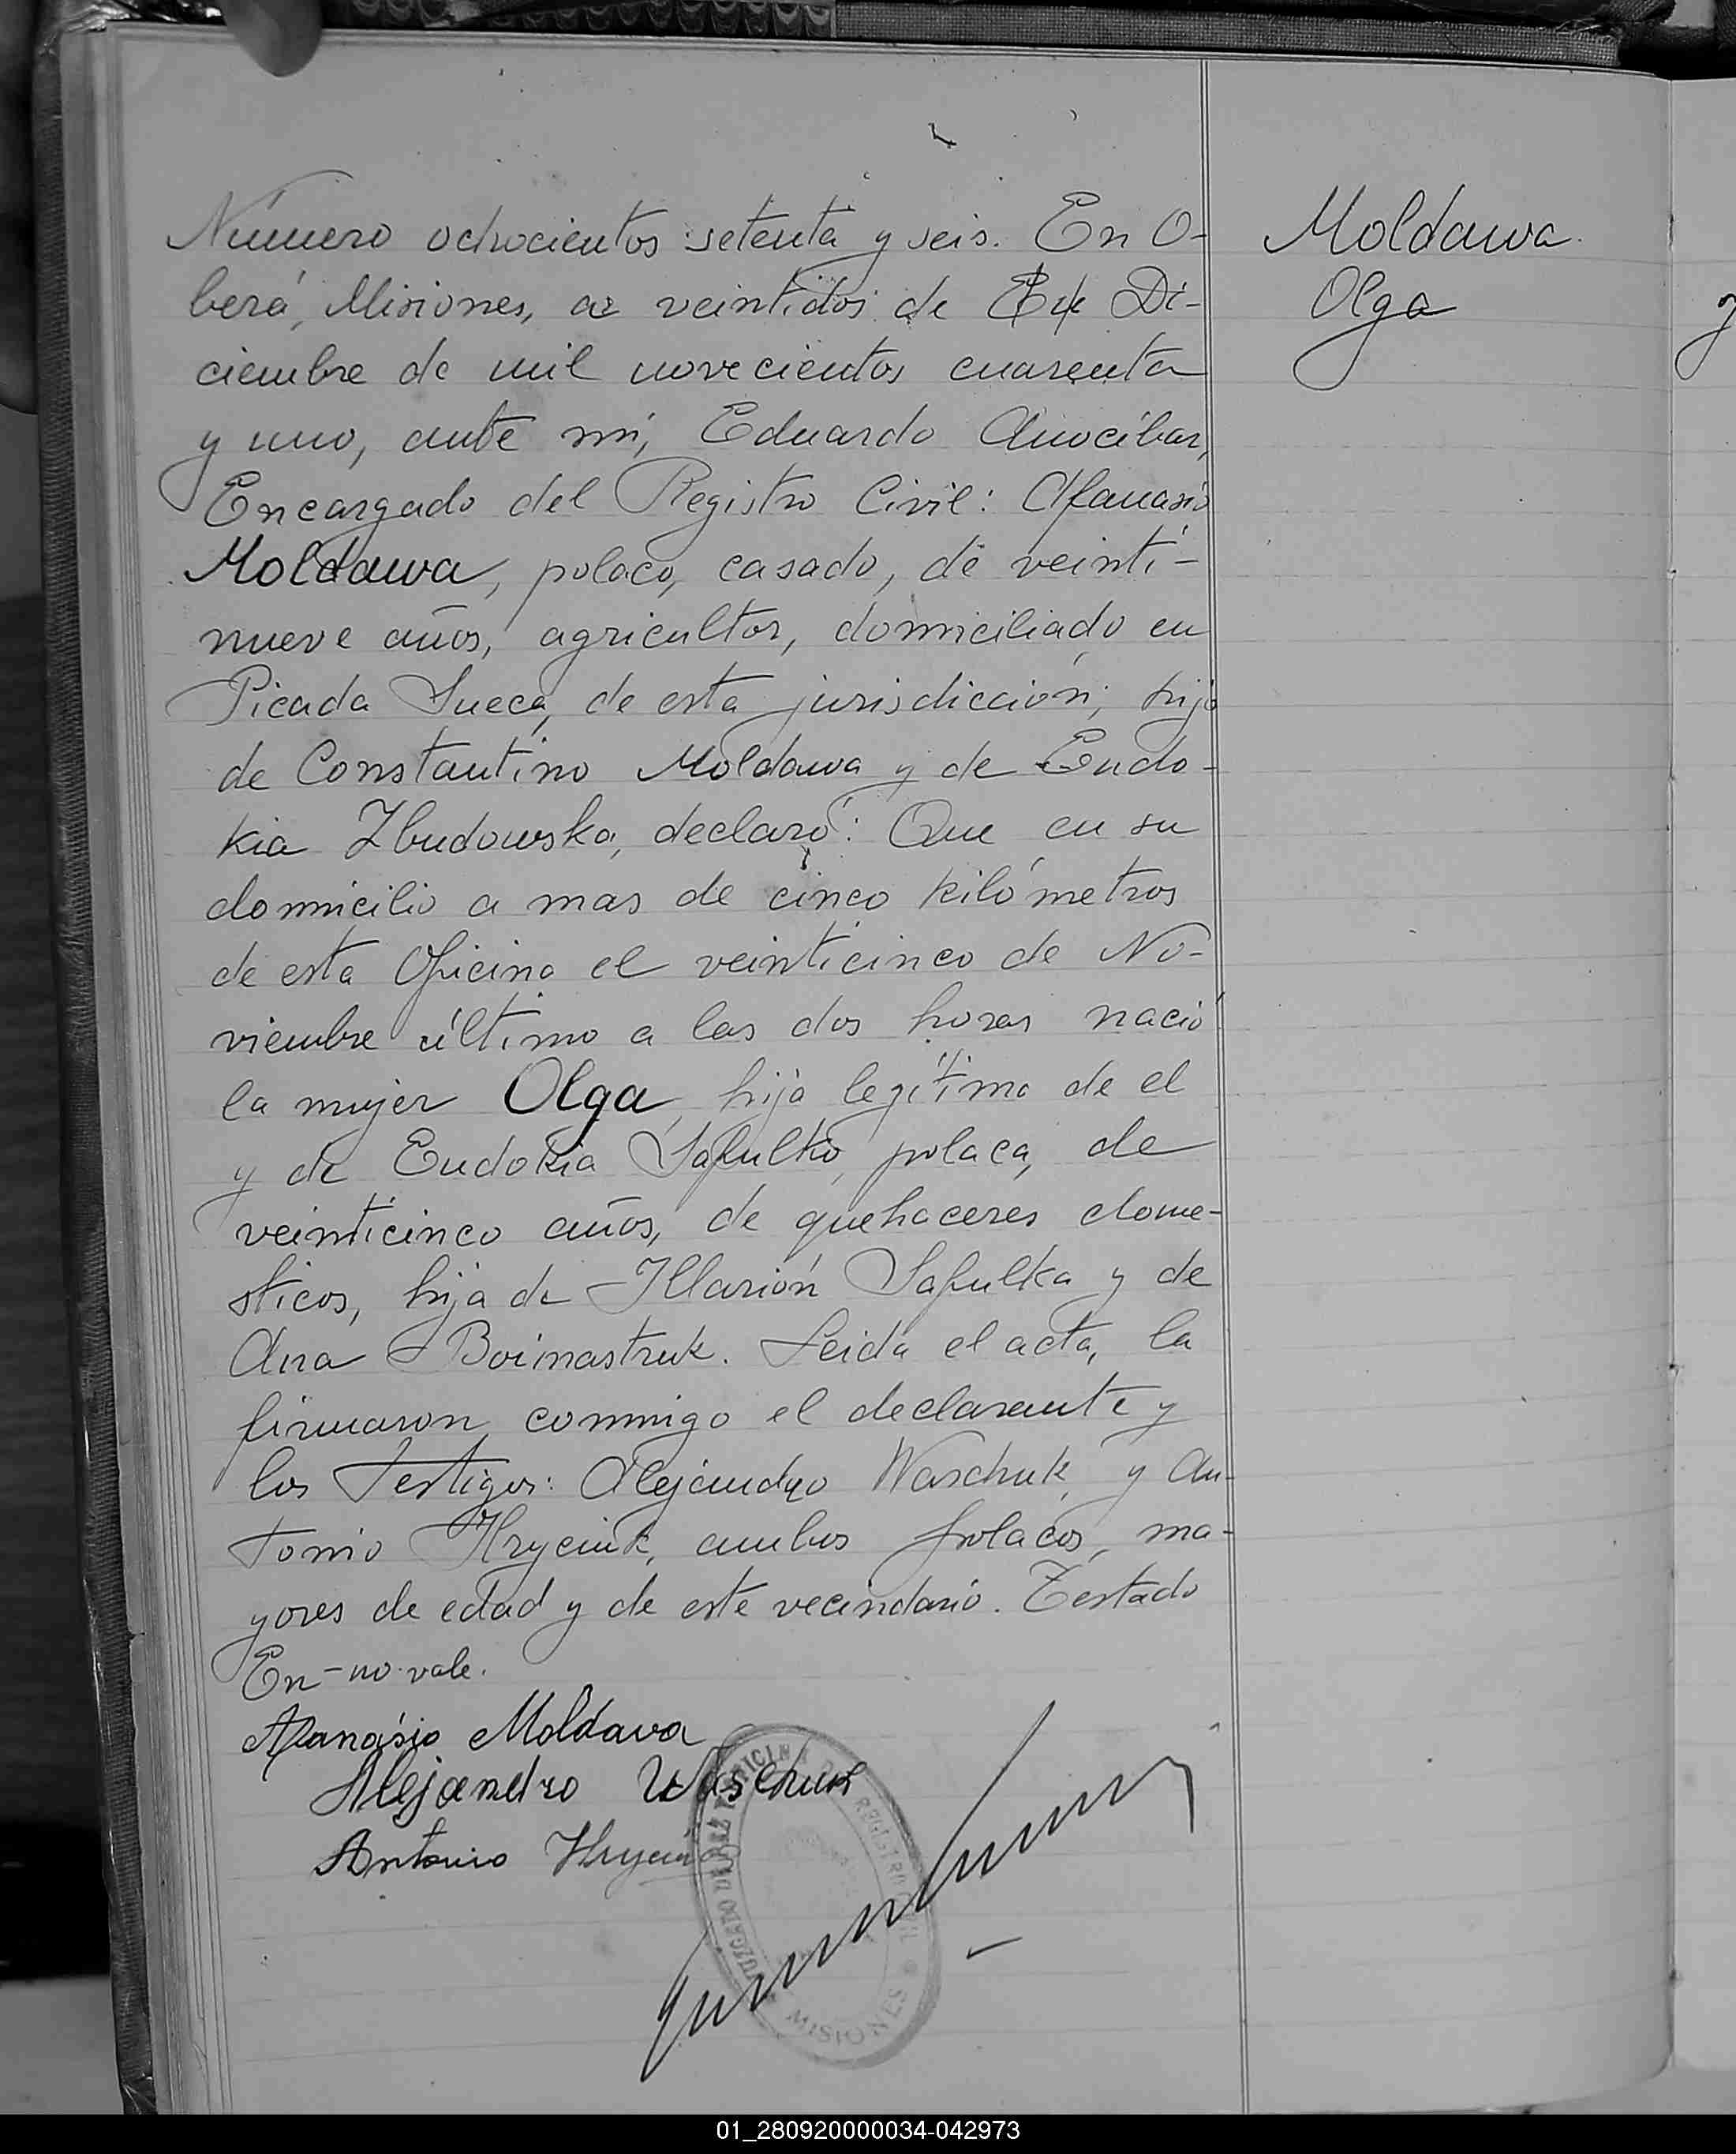 Número ochocientos setenta y seis. En O-
berá, Misiones, a veintidos de En Di-
ciembre de mil novecientos cuarenta
y uno, ante mí, Eduardo Anocíbar,
Encargado del Registro Civil: Afanasio
Moldawa, polaco, casado, de veinti-
nueve años, agricultor, domiciliado en
Picada Sueca, de esta jurisdicción; hijo
de Constantino Moldawa y de Eudo-
kia Zbudowska, declaró: Que en su
domicilio a mas de cinco kilómetros
de esta Oficina el veinticinco de No-
viembre último a las dos horas nació
la mujer Olga, hija legítima de el
y de Eudokia Sapulko, polaca, de
veinticinco años, de quehaceres dome-
sticos, hija de Illarión Sapulka y de
Ana Boimastruk. Leida el acta, la
firmaron conmigo el declarante y
los Testigos: Alejandro Waschuk, y An-
tonio Hryciuk, ambos polacos, ma-
yores de edad y de este vecindario. Testado
En-no vale.
Afanásio Moldava
Alejandro Waschuk
Antonio Hryciuk
JUZGADO DE PAZ Y OFICINA DE REGISTRO CIVIL
MISIONES
Moldawa
Olga
y
01_280920000034-042973